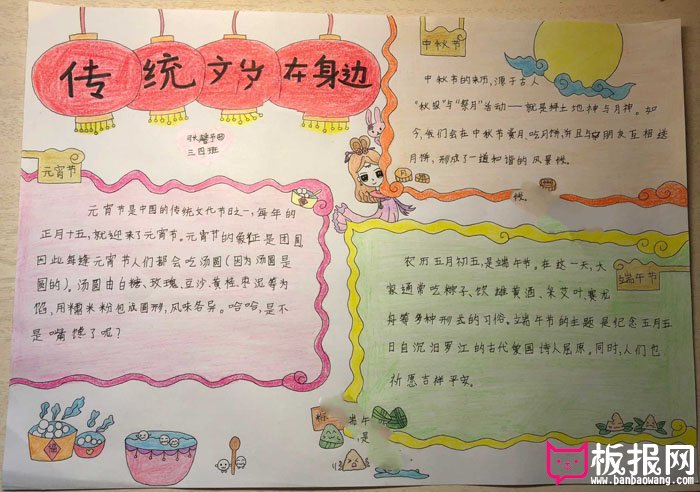 传统文岁在身边
三四班
元宵节
元宵节是中国的传统文化节日之一,每年的
正月十五,就迎来了元宵节。元宵节的象征是团圆
因此每逢元宵节人们都会吃汤圆(因为汤圆是
圆的)。汤圆由白糖、玫瑰、豆沙、黄桂、枣泥等为
馅,用糯米粉包成圆形,风味各异。哈哈,是不
是嘴馋了呢?
中秋节
中秋节的来历,源于古人
“秋报”与“祭月”活动——就是拜土地神与月神。如
今,我们会在中秋节赏月、吃月饼,并且与朋友互相送
月饼,形成了一道和谐的风景候。
候。
端午节
农历五月初五,是端午节。在这一天,大
家通常吃粽子、饮雄黄酒、朱艾叶、赛龙
舟等多种形式的习俗。端午节的主题是纪念五月五
日自沉汨罗江的古代爱国诗人屈原。同时,人们也
祈愿吉祥平安。
粽
端午
乐
是
福
板报网
www.banbaowang.com